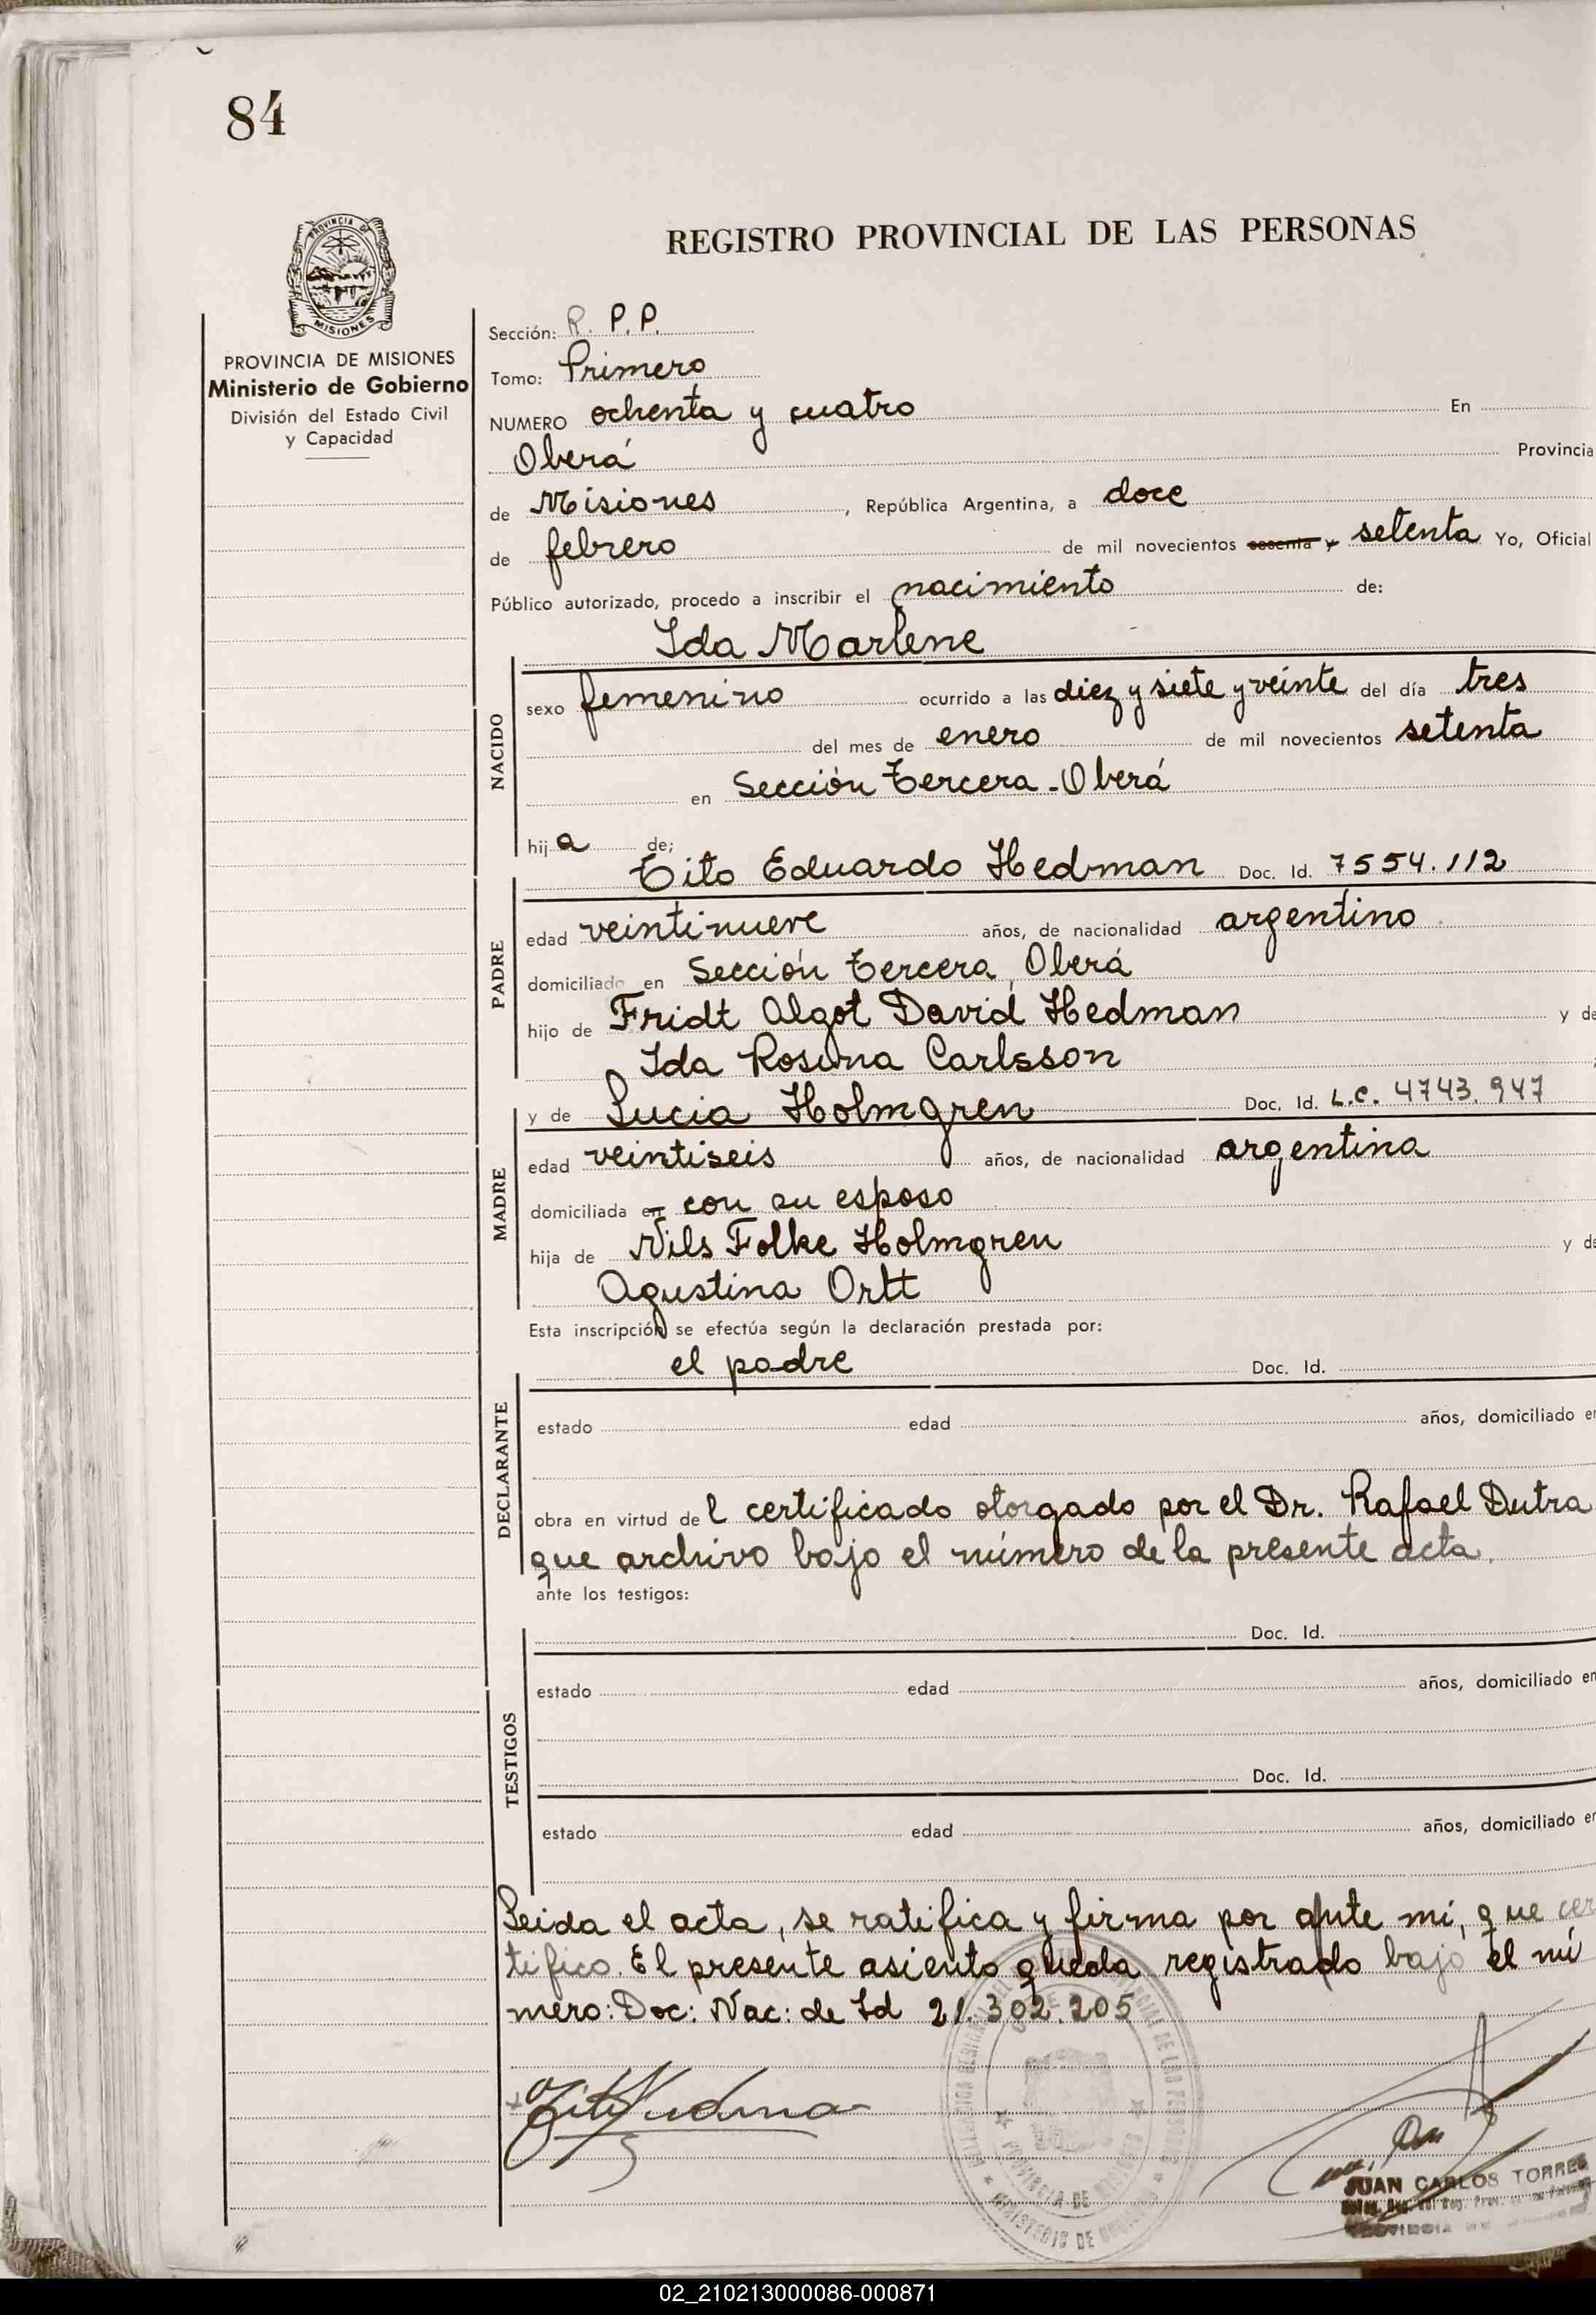 84
REGISTRO PROVINCIAL DE LAS PERSONAS
PROVINCIA DE
MISIONES
PROVINCIA DE MISIONES
Ministerio de Gobierno
División del Estado Civil
y Capacidad
Sección: R. P. P.
Tomo: Primero
NUMERO ochenta y cuatro En
Oberá Provincia
de Misiones, República Argentina, a doce
de febrero de mil novecientos sesenta y setenta Yo, Oficial
Público autorizado, procedo a inscribir el nacimiento de:
Ida Marlene
NACIDO
sexo femenino ocurrido a las diez y siete y veinte del día tres
del mes de enero de mil novecientos setenta
en Sección Tercera - Oberá
hija de;
Tito Eduardo Hedman Doc. Id. 7554.112
PADRE
edad veintinueve años, de nacionalidad argentino
domiciliado en Sección Tercera, Oberá
hijo de Fridt Algot David Hedman y de
Ida Rosina Carlsson
y de Lucia Holmgren Doc. Id. L.C. 4743.947
MADRE
edad veintiseis años, de nacionalidad argentina
domiciliada en con su esposo
hija de Nils Folke Holmgren y de
Agustina Ortt
Esta inscripción se efectúa según la declaración prestada por:
el padre Doc. Id.
DECLARANTE
estado edad años, domiciliado en
obra en virtud del certificado otorgado por el Dr. Rafael Dutra
que archivo bajo el número de la presente acta.
ante los testigos:
Doc. Id.
TESTIGOS
estado edad años, domiciliado en
Doc. Id.
estado edad años, domiciliado en
Leida el acta, se ratifica y firma por ante mí, que cer
tifico. El presente asiento queda registrado bajo el nú
mero: Doc: Nac: de Id 21.302.205
PROVINCIA DE MISIONES
MINISTERIO DE GOBIERNO
JUAN CARLOS TORRES
PROVINCIA
02_210213000086-000871